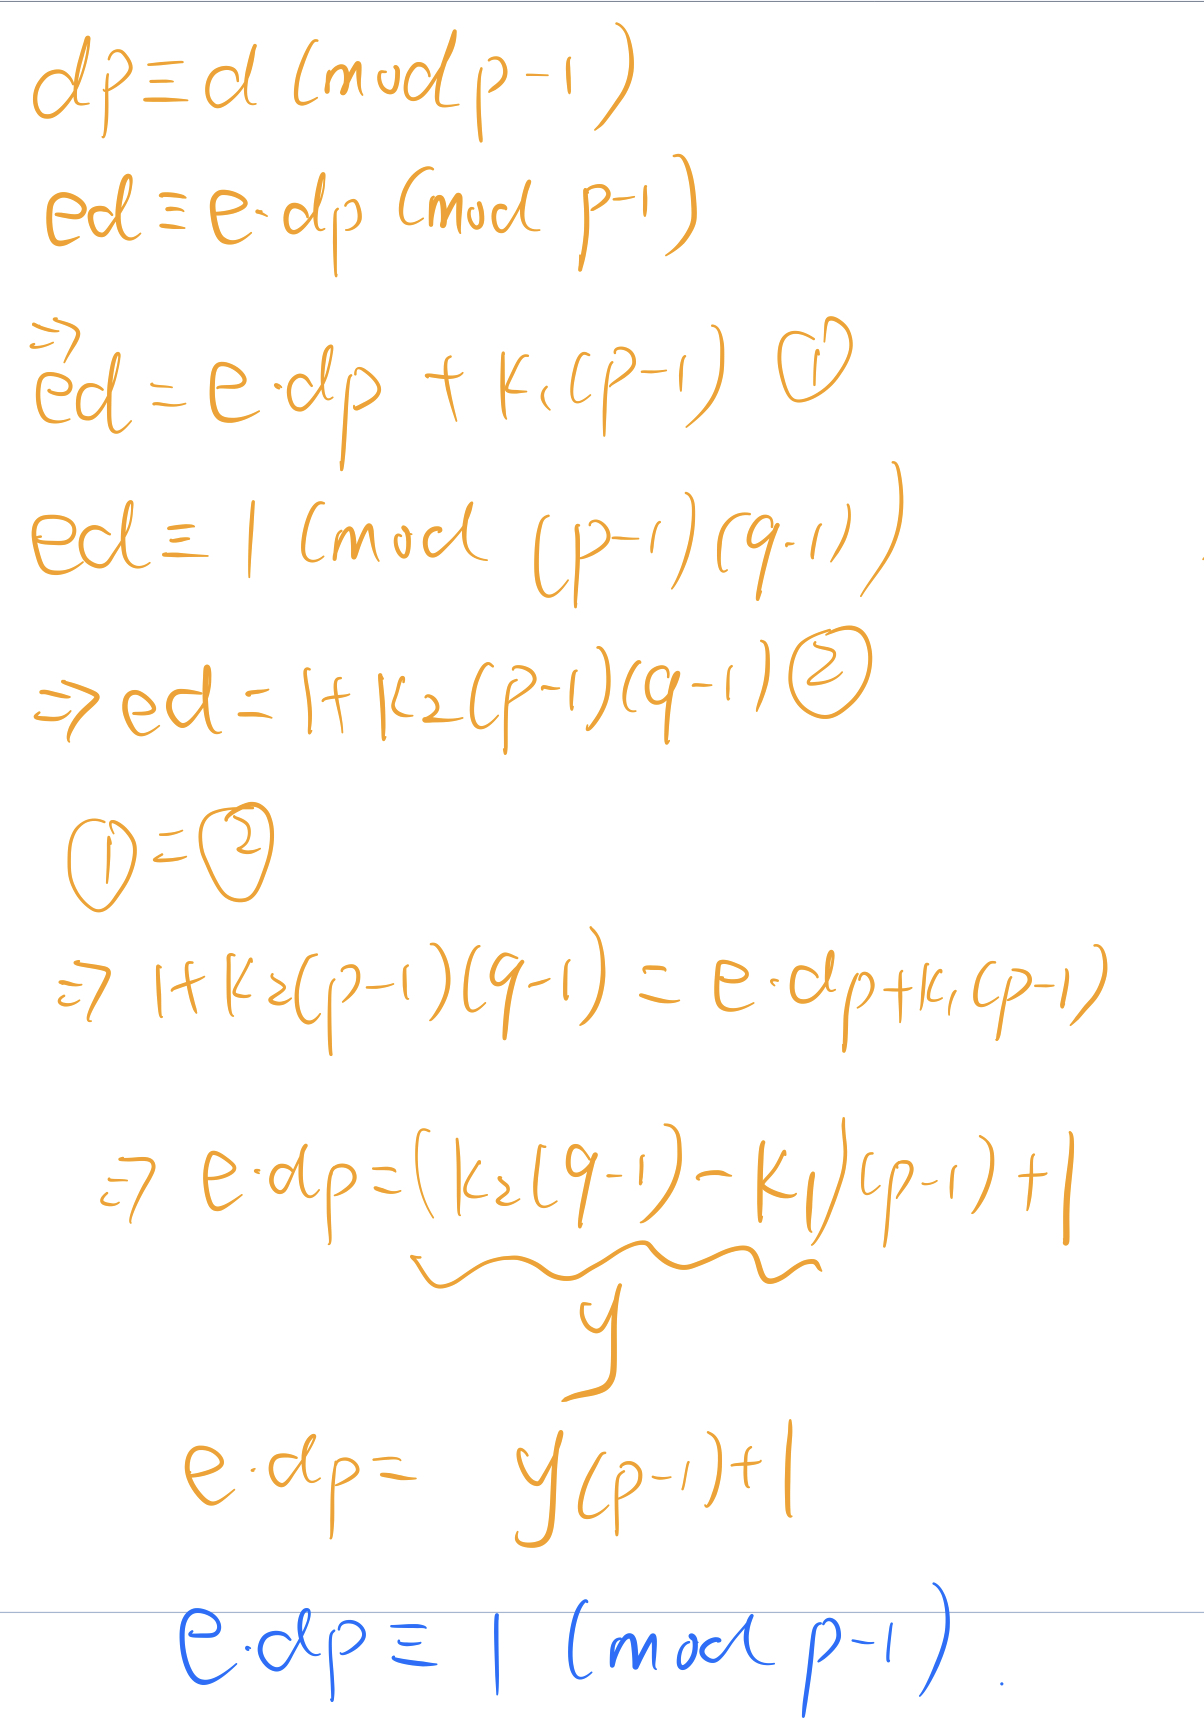 dp≡d (mod p-1)
ed≡e·dp (mod p-1)
⇒
ed=e·dp + k₁(p-1) ①
ed≡1 (mod (p-1)(q-1))
⇒ed=1+k₂(p-1)(q-1) ②
①=②
⇒ 1+k₂(p-1)(q-1) = e·dp+k₁(p-1)
⇒ e·dp=(k₂(q-1)-k₁)(p-1)+1
y
e·dp= y(p-1)+1
e·dp≡1 (mod p-1).